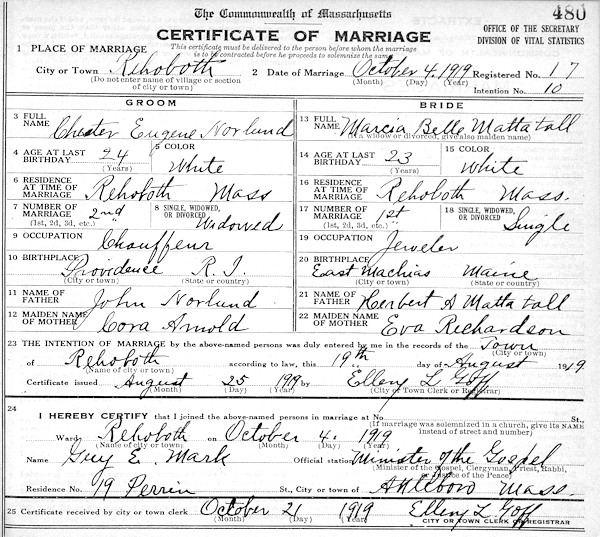 480
The Commonwealth of Massachusetts
CERTIFICATE OF MARRIAGE
OFFICE OF THE SECRETARY
DIVISION OF VITAL STATISTICS
This certificate must be delivered to the person before whom the marriage
is to be contracted before he proceeds to solemnize the same.
1 PLACE OF MARRIAGE
City or Town Rehoboth 2 Date of Marriage October 4, 1919 Registered No. 17
(Do not enter name of village or section
of city or town) (Month) (Day) (Year) Intention No. 10
GROOM BRIDE
3 FULL NAME Chester Eugene Norlund
13 FULL NAME Marcia Belle Mattatall
(If a widow or divorced, give also maiden name)
4 AGE AT LAST BIRTHDAY 24 (Years) 5 COLOR White
14 AGE AT LAST BIRTHDAY 23 (Years) 15 COLOR White
6 RESIDENCE AT TIME OF MARRIAGE Rehoboth Mass
16 RESIDENCE AT TIME OF MARRIAGE Rehoboth Mass.
7 NUMBER OF MARRIAGE 2nd (1st, 2d, 3d, etc.) 8 SINGLE, WIDOWED OR DIVORCED Widowed
17 NUMBER OF MARRIAGE 1st (1st, 2d, 3d, etc.) 18 SINGLE, WIDOWED OR DIVORCED Single
9 OCCUPATION Chauffeur
19 OCCUPATION Jeweler
10 BIRTHPLACE Providence R.I.
(City or town) (State or country)
20 BIRTHPLACE East Machias Maine
(City or town) (State or country)
11 NAME OF FATHER John Norlund
21 NAME OF FATHER Herbert A Mattatall
12 MAIDEN NAME OF MOTHER Cora Arnold
22 MAIDEN NAME OF MOTHER Eva Richardson
23 THE INTENTION OF MARRIAGE by the above-named persons was duly entered by me in the records of the Town
(City or town)
of Rehoboth according to law, this 19th day of August 1919
(Name of city or town)
Certificate issued August 25 1919 by Ellery L Goff
(Month) (Day) (Year) (City or Town Clerk or Registrar)
24 I HEREBY CERTIFY that I joined the above-named persons in marriage at No. St.,
(If marriage was solemnized in a church, give its NAME
instead of street and number)
Ward, Rehoboth on October 4, 1919
(Name of city or town) (Month) (Day) (Year)
Name Guy E. Mark Official station Minister of the Gospel
(Minister of the Gospel, Clergyman, Priest, Rabbi,
or Justice of the Peace)
Residence No. 19 Perrin St., City or town of Attleboro Mass.
25 Certificate received by city or town clerk October 21 1919 Ellery L Goff
(Month) (Day) (Year) CITY OR TOWN CLERK OR REGISTRAR